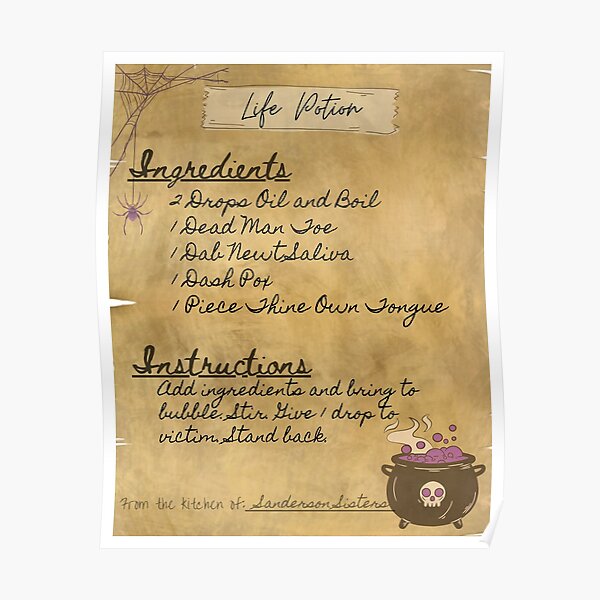 Life Potion
Ingredients
2 Drops Oil and Boil
1 Dead Man Toe
1 Dab Newt Saliva
1 Dash Pox
1 Piece Thine Own Tongue
Instructions
Add ingredients and bring to
bubble. Stir. Give 1 drop to
victim. Stand back.
From the kitchen of: Sanderson Sisters